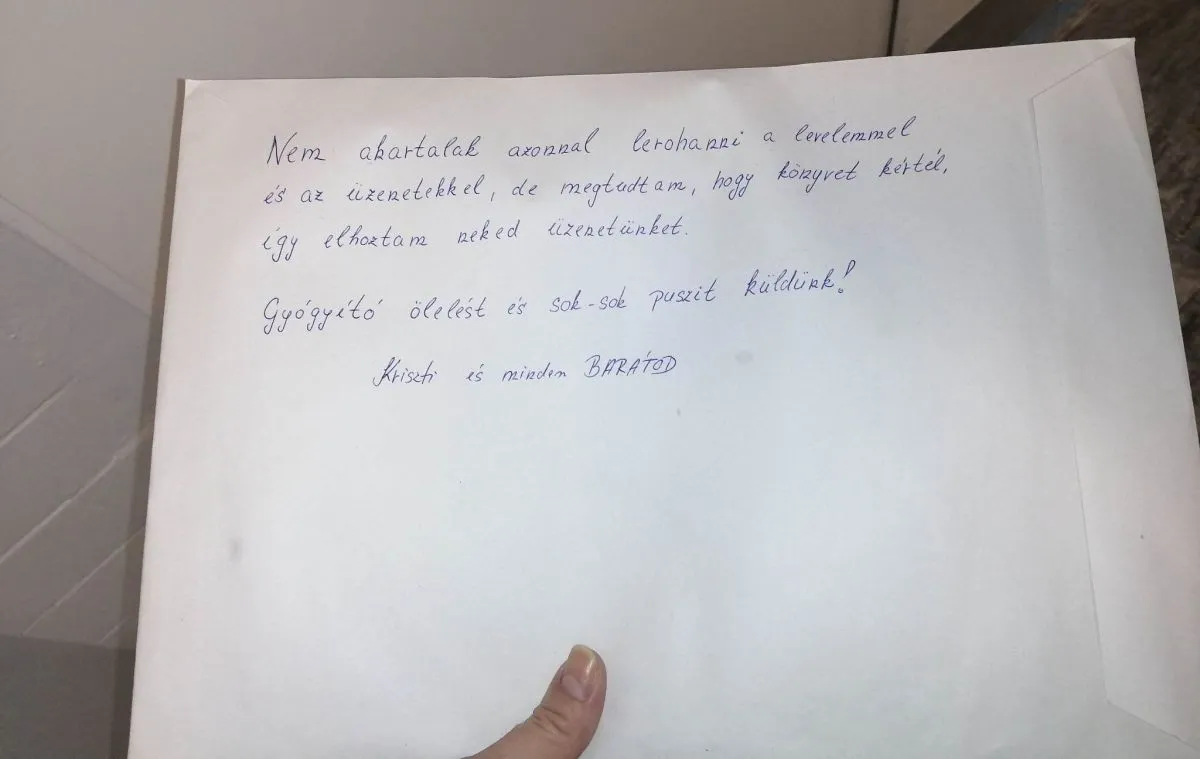 Nem akartalak azonnal lerohanni a levelemmel
és az üzenetekkel, de megtudtam, hogy könyvet kértél,
így elhoztam neked üzenetünket.
Gyógyító ölelést és sok-sok puszit küldünk!
Kriszti és minden BARÁTOD